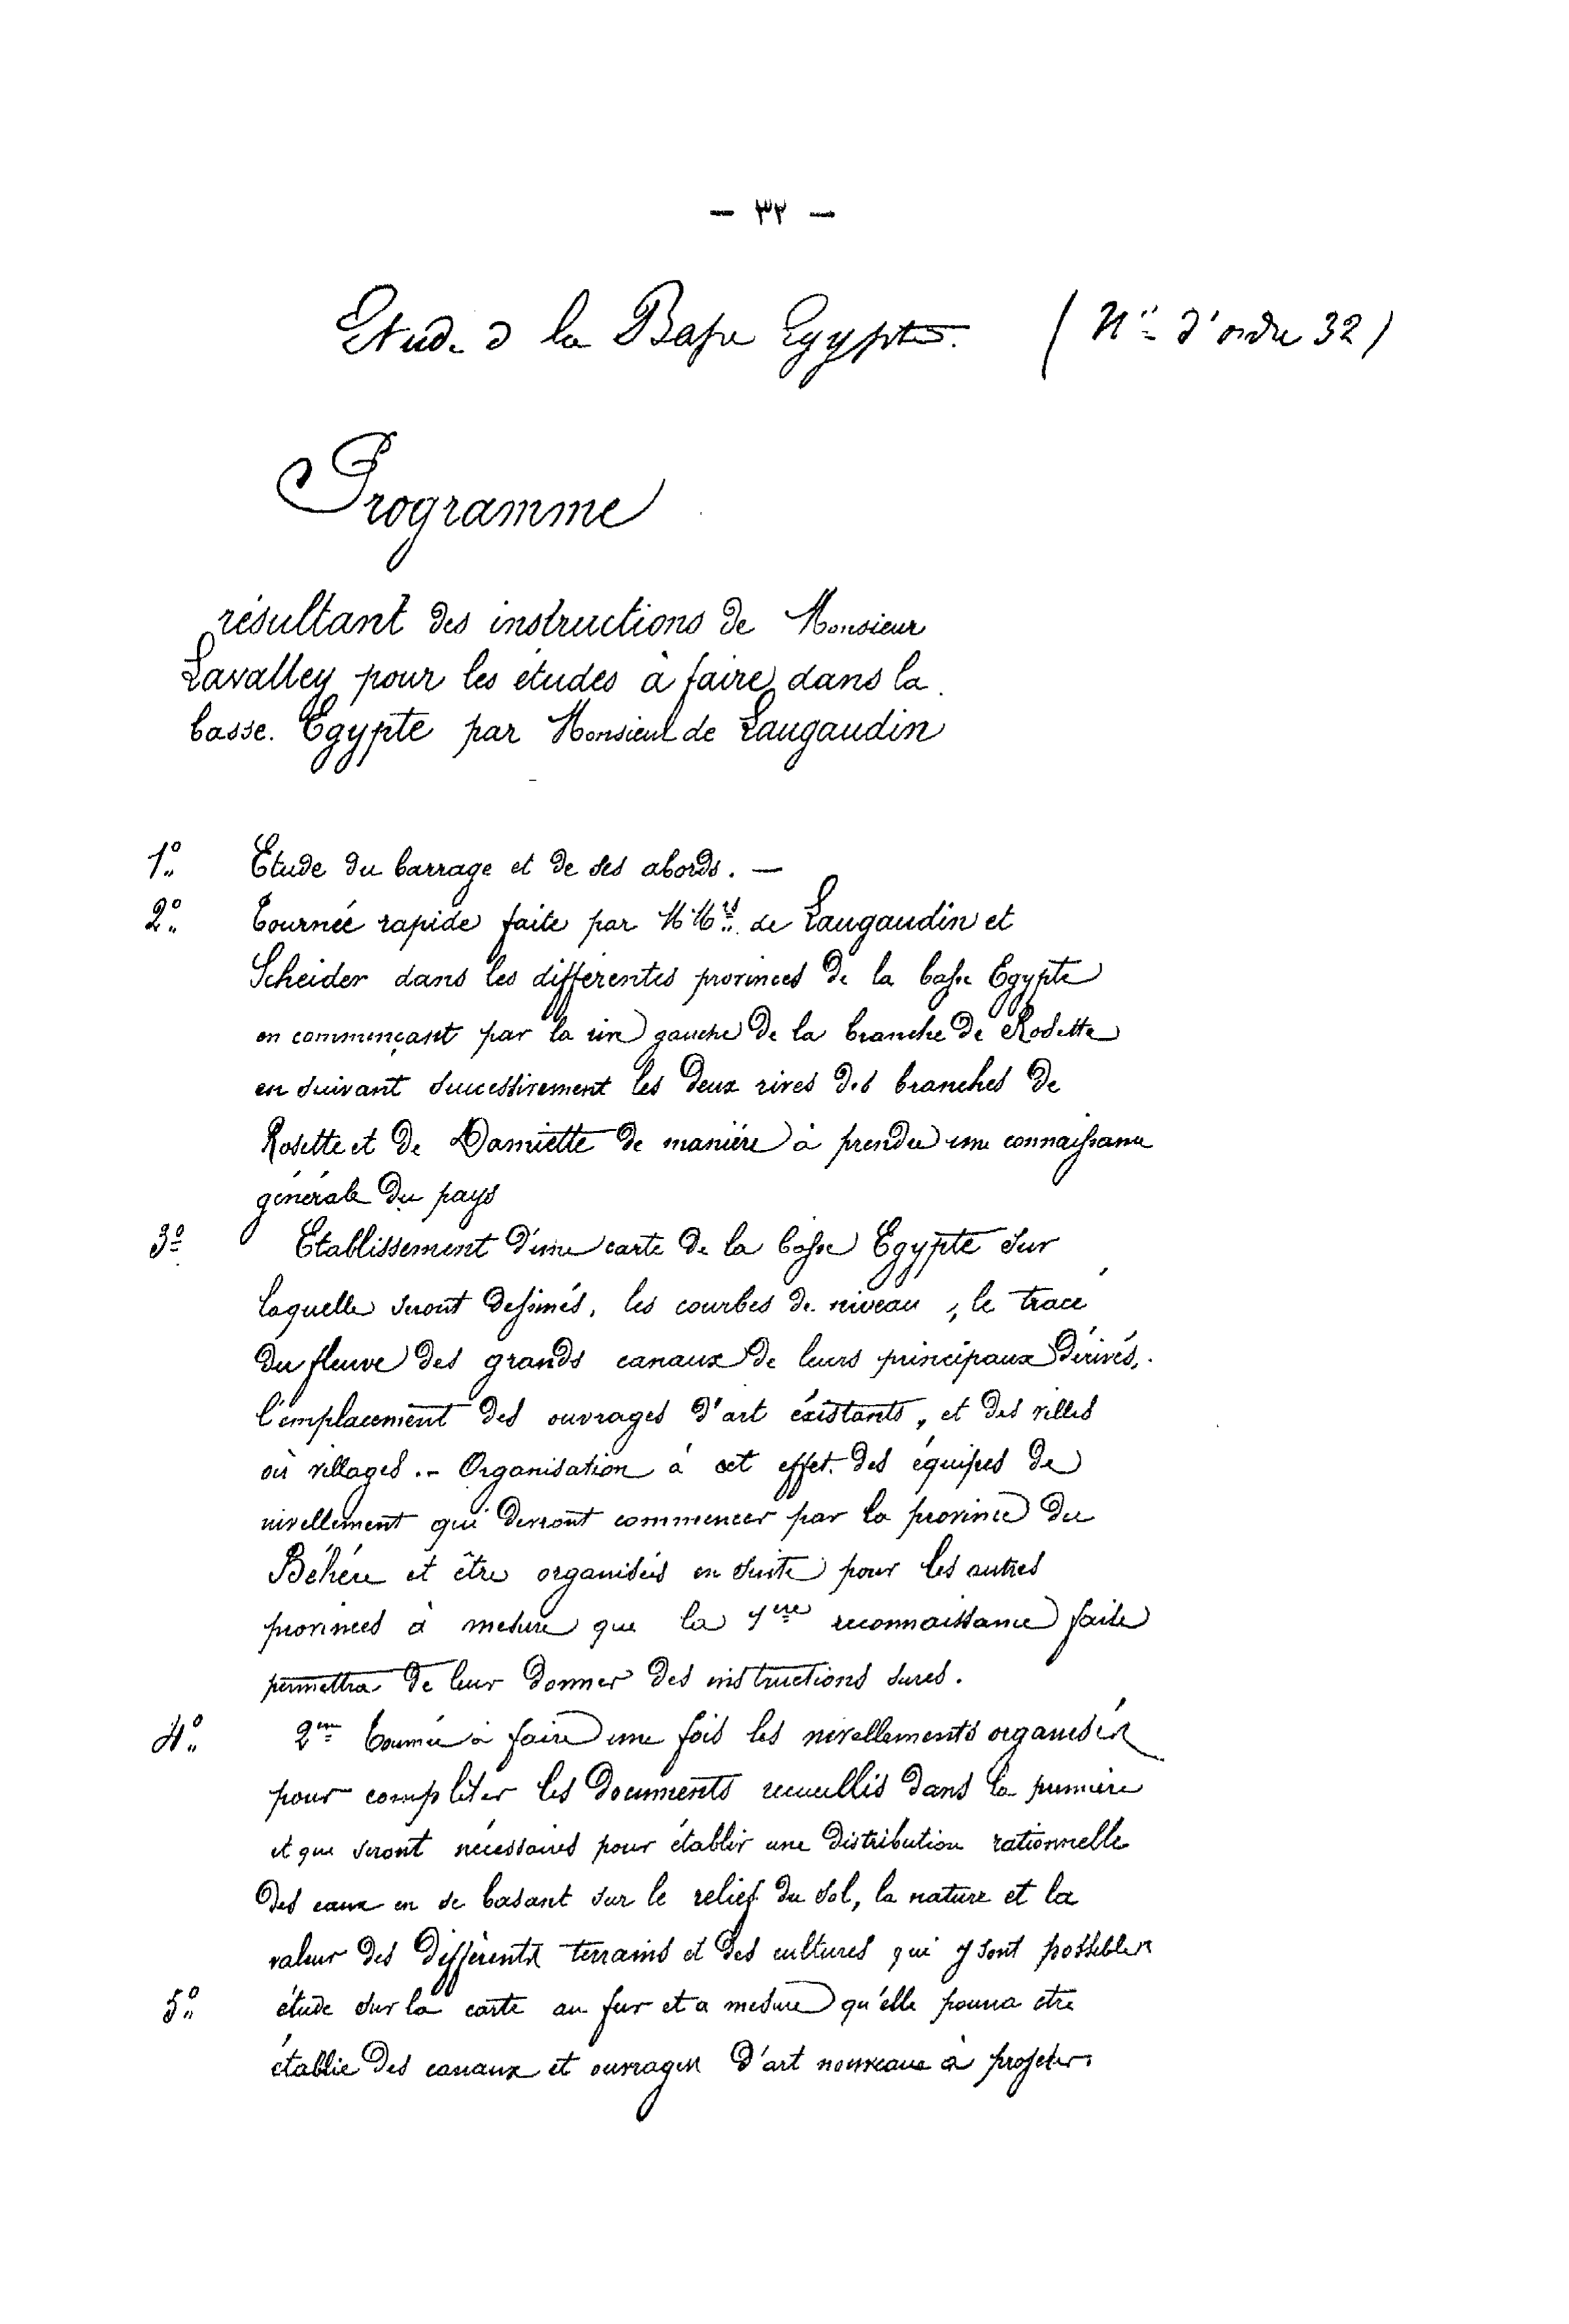 — ٣٢ —
Etude de la Basse Egypte. (N° d'ordre 32)
Programme
résultant des instructions de Monsieur
Lavalley pour les études à faire dans la
basse. Egypte par Monsieur de Laugaudin
1° Etude du barrage et de ses abords. —
2° Tournée rapide faite par MMrs de Laugaudin et
Scheider dans les differentes provinces de la basse Egypte
en commençant par la rive gauche de la branche de Rosette
en suivant successivement les deux rives des branches de
Rosette et de Damiette de manière à prendre une connaissance
générale du pays
3° Etablissement d'une carte de la basse Egypte sur
laquelle seront dessinés, les courbes de niveau, le tracé
du fleuve des grands canaux de leurs principaux dérivés,
l'emplacement des ouvrages d'art éxistants, et des villes
où villages. - Organisation à cet effet. des équipes de
nivellement qui devront commencer par la province du
Béhére et être organisées en suite pour les autres
provinces à mesure que la 1ere reconnaissance faite
permettra de leur donner des instructions sures.
4° 2em tournée à faire une fois les nivellements organisés
pour compléter les documents recueillis dans la première
et que seront nécessaires pour établir une distribution rationnelle
des eaux en se basant sur le relief du sol, la nature et la
valeur des différents terrains et des cultures qui y sont possibles
5° étude sur la carte au fur et a mesure qu'elle pourra etre
établie des canaux et ouvrages d'art nouveaux à projeter.